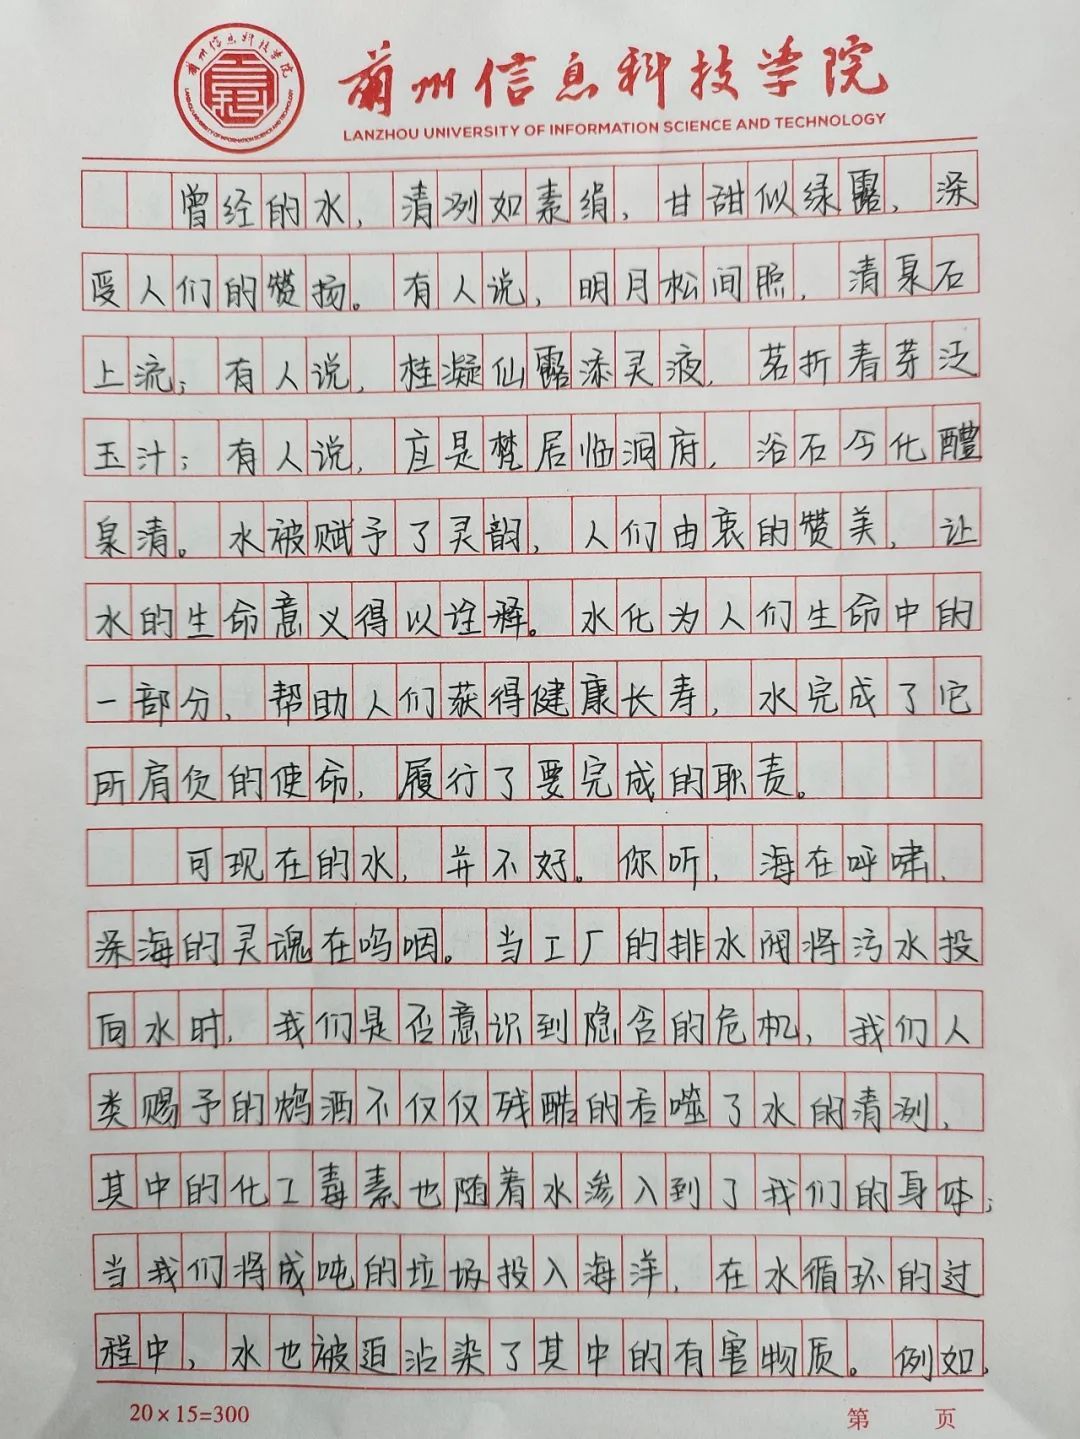 兰州信息科技学院
兰州信息科技学院
LANZHOU UNIVERSITY OF INFORMATION SCIENCE AND TECHNOLOGY
LANZHOU UNIVERSITY OF INFORMATION SCIENCE AND TECHNOLOGY
曾经的水，清冽如素绢，甘甜似绿露，深
受人们的赞扬。有人说，明月松间照，清泉石
上流；有人说，桂凝仙露添灵液，茗折春芽泛
玉汁；有人说，应是梵居临洞府，浴石今化醴
泉清。水被赋予了灵韵，人们由衷的赞美，让
水的生命意义得以诠释。水化为人们生命中的
一部分，帮助人们获得健康长寿，水完成了它
所肩负的使命，履行了要完成的职责。
可现在的水，并不好。你听，海在呼啸，
深海的灵魂在呜咽。当工厂的排水阀将污水投
向水时，我们是否意识到隐含的危机，我们人
类赐予的鸩酒不仅仅残酷的吞噬了水的清冽，
其中的化工毒素也随着水渗入到了我们的身体；
当我们将成吨的垃圾投入海洋，在水循环的过
程中，水也被迫沾染了其中的有害物质。例如，
20×15=300
第 页